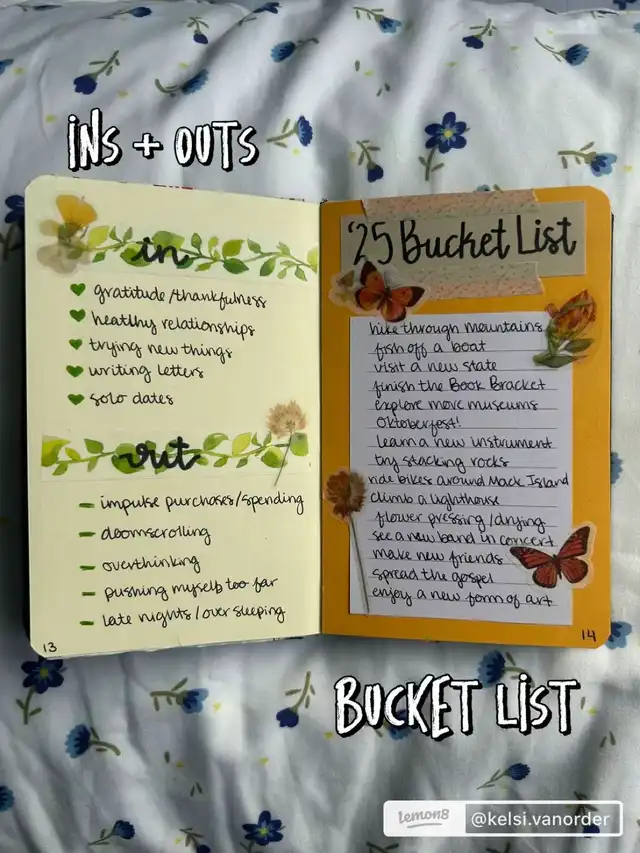 INS + OUTS
in
gratitude/thankfulness
healthy relationships
trying new things
writing letters
solo dates
out
impulse purchases/spending
doomscrolling
overthinking
pushing myself too far
late nights/oversleeping
13
'25 Bucket List
hike through mountains
fish off a boat
visit a new state
finish the Book Bracket
explore more museums
Oktoberfest!
learn a new instrument
try stacking rocks
ride bikes around Mack Island
climb a lighthouse
flower pressing/drying
see a new band in concert
make new friends
spread the gospel
enjoy a new form of art
14
BUCKET LIST
lemon8 @kelsi.vanorder